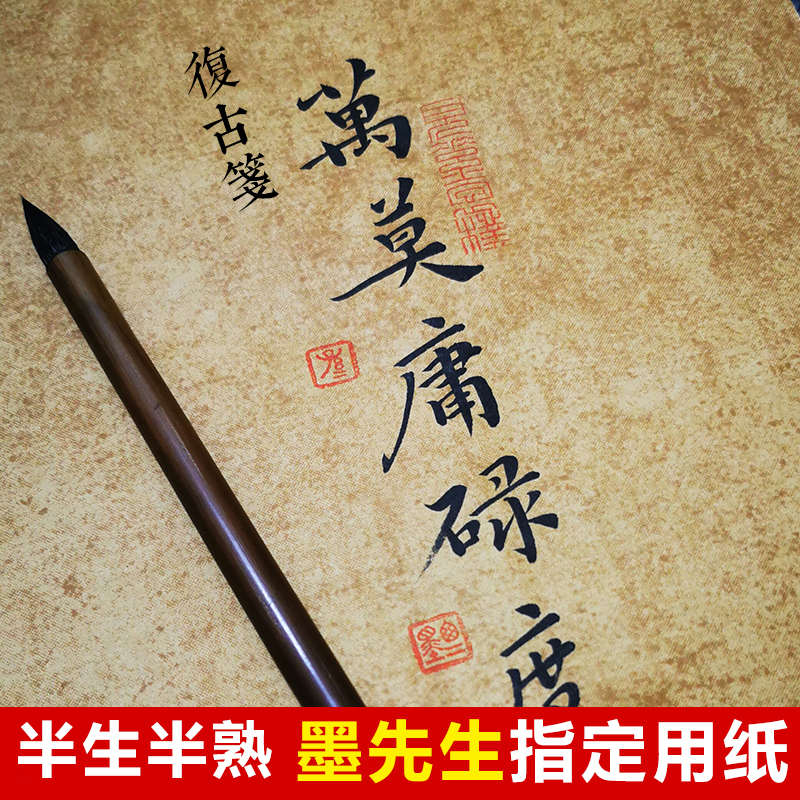 復古箋
萬莫庸碌度
半生半熟 墨先生指定用纸